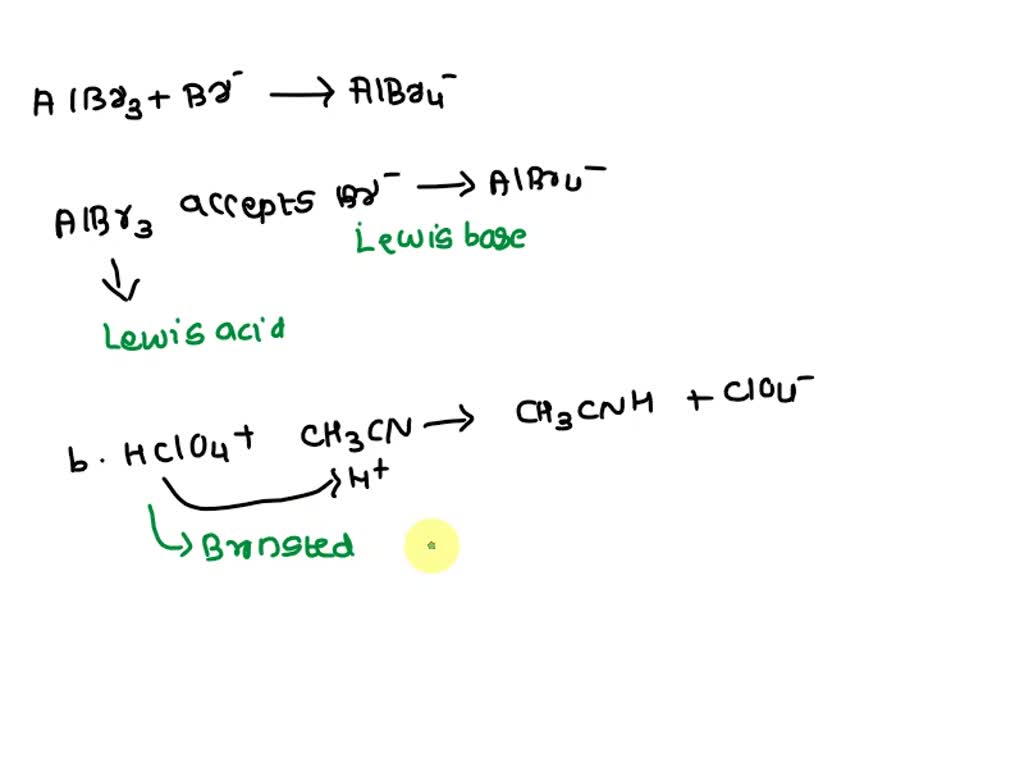 AlBr3 + Br⁻ → AlBr4⁻
AlBr3 accepts Br⁻ → AlBr4⁻
Lewis base
Lewis acid
b. HClO4 + CH3CN → CH3CNH + ClO4⁻
H⁺
Bronsted